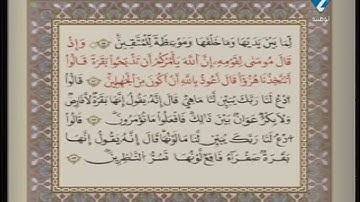 لِّمَا بَيْنَ يَدَيْهَا وَمَا خَلْفَهَا وَمَوْعِظَةً لِّلْمُتَّقِينَ ۝ وَإِذْ
قَالَ مُوسَىٰ لِقَوْمِهِ إِنَّ اللَّهَ يَأْمُرُكُمْ أَن تَذْبَحُوا بَقَرَةً قَالُوا
أَتَتَّخِذُنَا هُزُؤًا قَالَ أَعُوذُ بِاللَّهِ أَنْ أَكُونَ مِنَ الْجَاهِلِينَ ۝ قَالُوا
ادْعُ لَنَا رَبَّكَ يُبَيِّن لَّنَا مَا هِيَ قَالَ إِنَّهُ يَقُولُ إِنَّهَا بَقَرَةٌ لَّا فَارِضٌ
وَلَا بِكْرٌ عَوَانٌ بَيْنَ ذَٰلِكَ فَافْعَلُوا مَا تُؤْمَرُونَ ۝ قَالُوا
ادْعُ لَنَا رَبَّكَ يُبَيِّن لَّنَا مَا لَوْنُهَا قَالَ إِنَّهُ يَقُولُ إِنَّهَا
بَقَرَةٌ صَفْرَاءُ فَاقِعٌ لَّوْنُهَا تَسُرُّ النَّاظِرِينَ ۝